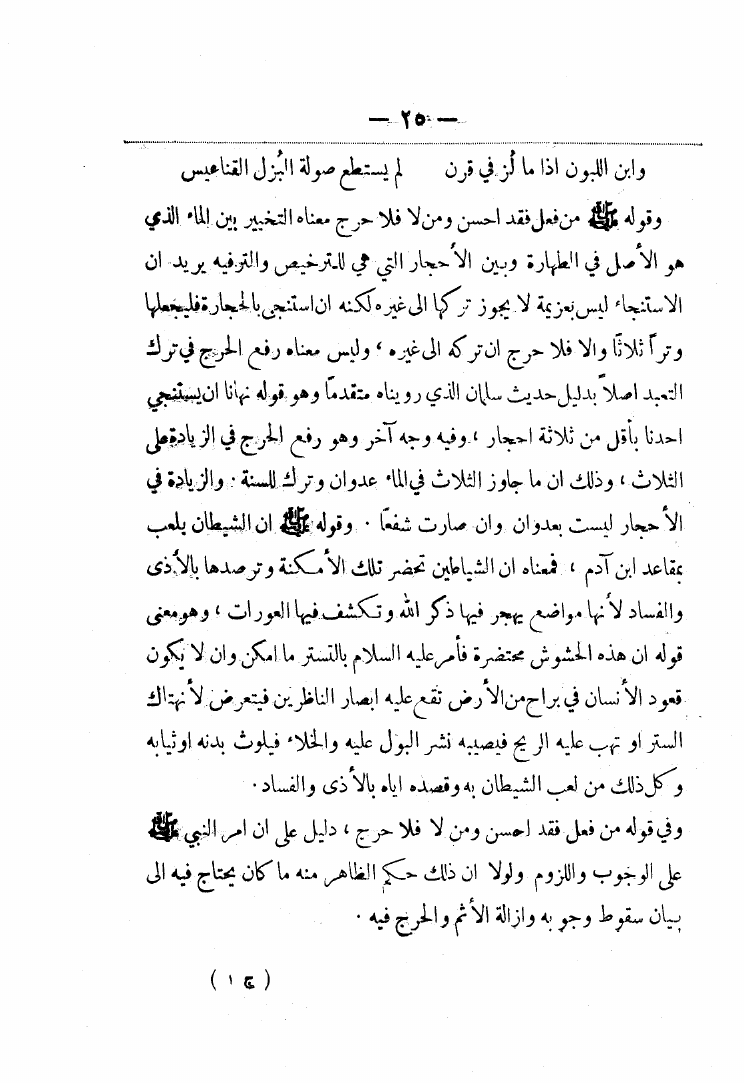 — ٢٥ —
وابن اللبون اذا ما لُز في قرن لم يستطع صولة البُزل القناعيس
وقوله ﷺ من فعل فقد احسن ومن لا فلا حرج معناه التخيير بين الماء الذي
هو الأصل في الطهارة وبين الأحجار التي هي للترخيص والترفيه يريد ان
الاستنجاء ليس بعزيمة لا يجوز تركها الى غيره لكنه ان استنجى بالحجارة فليجعلها
وتراً ثلاثًا والا فلا حرج ان تركه الى غيره ، وليس معناه رفع الحرج في ترك
التعبد اصلاً بدليل حديث سلمان الذي رويناه متقدمًا وهو قوله نهانا ان يستنجي
احدنا بأقل من ثلاثة احجار ، وفيه وجه آخر وهو رفع الحرج في الزيادة على
الثلاث ، وذلك ان ما جاوز الثلاث في الماء عدوان وترك للسنة . والزيادة في
الأحجار ليست بعدوان وان صارت شفعًا . وقوله ﷺ ان الشيطان يلعب
بمقاعد ابن آدم ، فمعناه ان الشياطين تحضر تلك الأمكنة وترصدها بالأذى
والفساد لأنها مواضع يهجر فيها ذكر الله وتكشف فيها العورات ، وهو معنى
قوله ان هذه الحشوش محتضرة فأمر عليه السلام بالتستر ما امكن وان لا يكون
قعود الأنسان في براح من الأرض تقع عليه ابصار الناظرين فيتعرض لأنهتاك
الستر او تهب عليه الريح فيصيبه نشر البول عليه والخلاء فيلوث بدنه او ثيابه
وكل ذلك من لعب الشيطان به وقصده اياه بالأذى والفساد .
وفي قوله من فعل فقد احسن ومن لا فلا حرج ، دليل على ان امر النبي ﷺ
على الوجوب واللزوم ولولا ان ذلك حكم الظاهر منه ما كان يحتاج فيه الى
بيان سقوط وجوبه وازالة الأثم والحرج فيه .
( ج ١ )